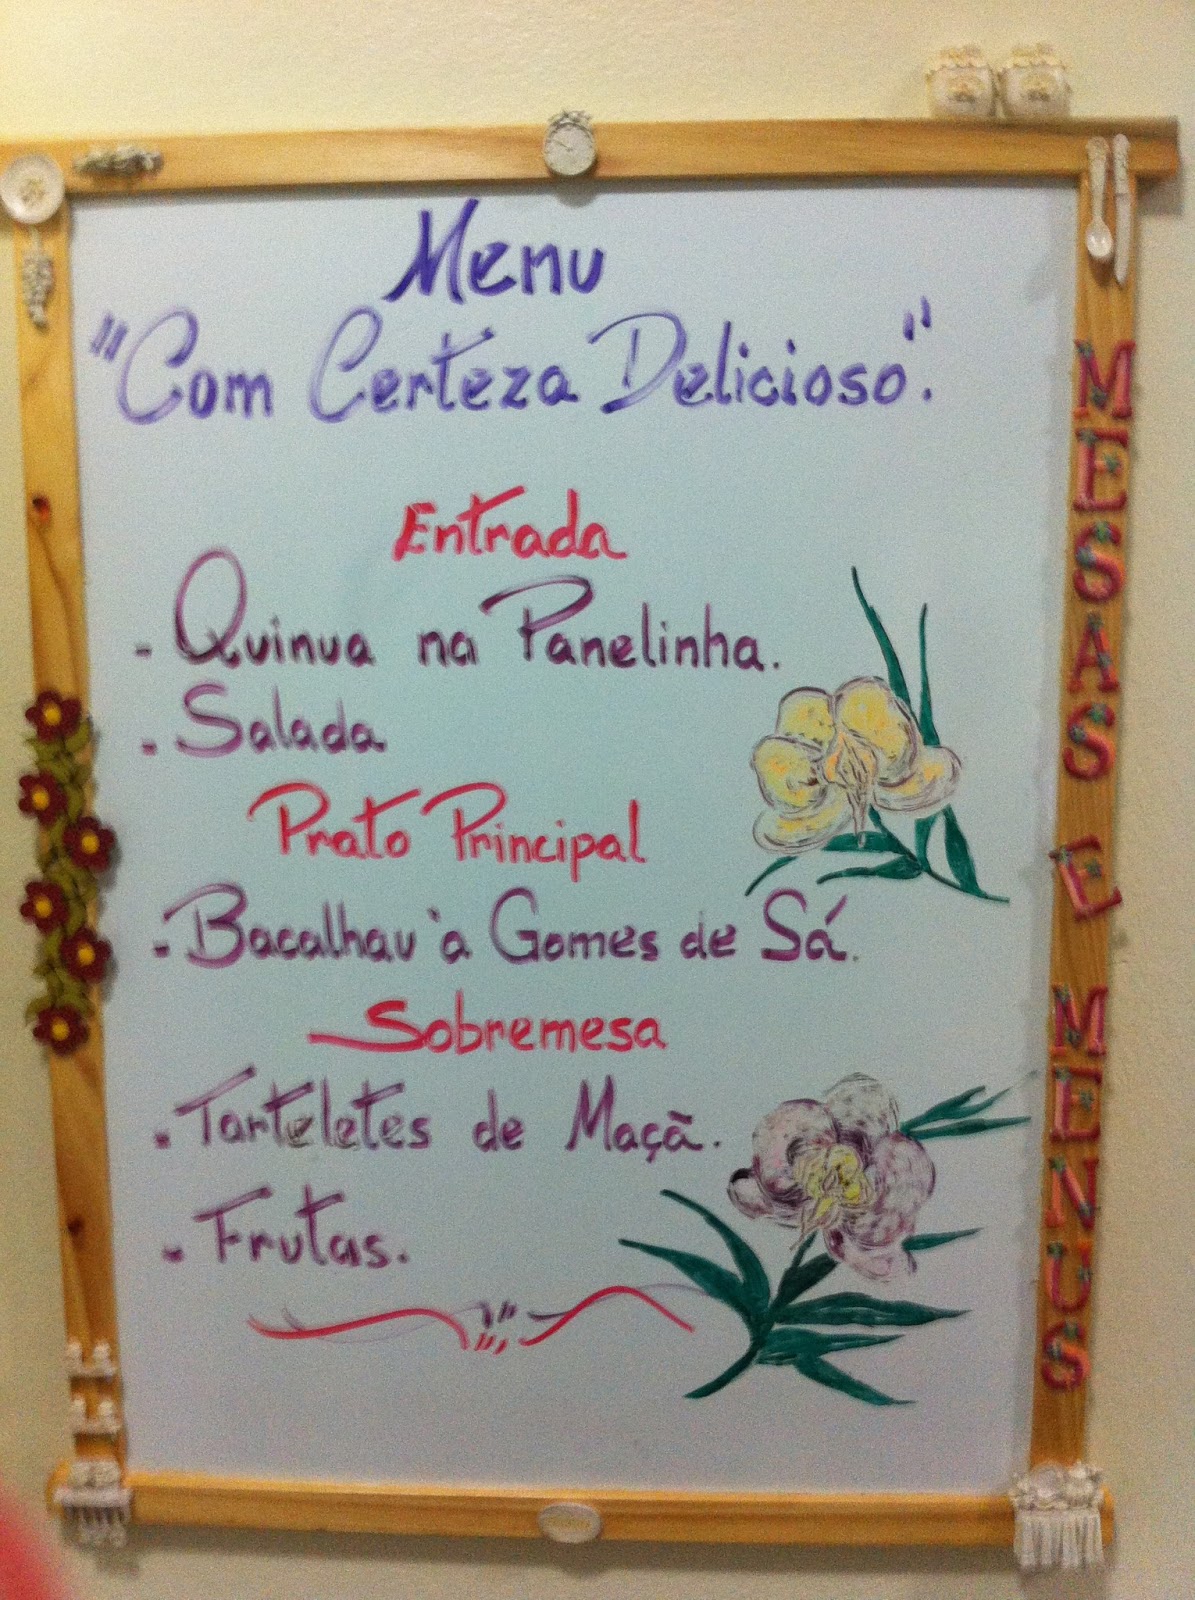 Menu
"Com Certeza Delicioso".
Entrada
- Quinua na Panelinha.
- Salada
Prato Principal
- Bacalhau à Gomes de Sá.
Sobremesa
- Tarteletes de Maçã.
- Frutas.
MESAS E MENUS